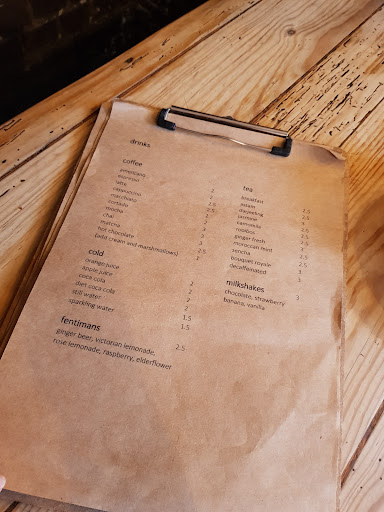 drinks
coffee
americano
espresso
latte 2
cappuccino 2
macchiato 2.5
cortado 2.5
mocha 2
chai
matcha 3
hot chocolate 3
(add cream and marshmallows) 2.5
cold
orange juice
apple juice 2
coca cola 2
diet coca cola 2
still water 2
sparkling water 1.5
1.5
fentimans
ginger beer, victorian lemonade, 2.5
rose lemonade, raspberry, elderflower
tea
breakfast
assam 2.5
darjeeling 2.5
jasmine 3
camomile
rooibos 2.5
ginger fresh 2.5
moroccan mint 3
sencha 3
bouquet royale 2.5
decaffeinated 3
milkshakes
chocolate, strawberry 3
banana, vanilla